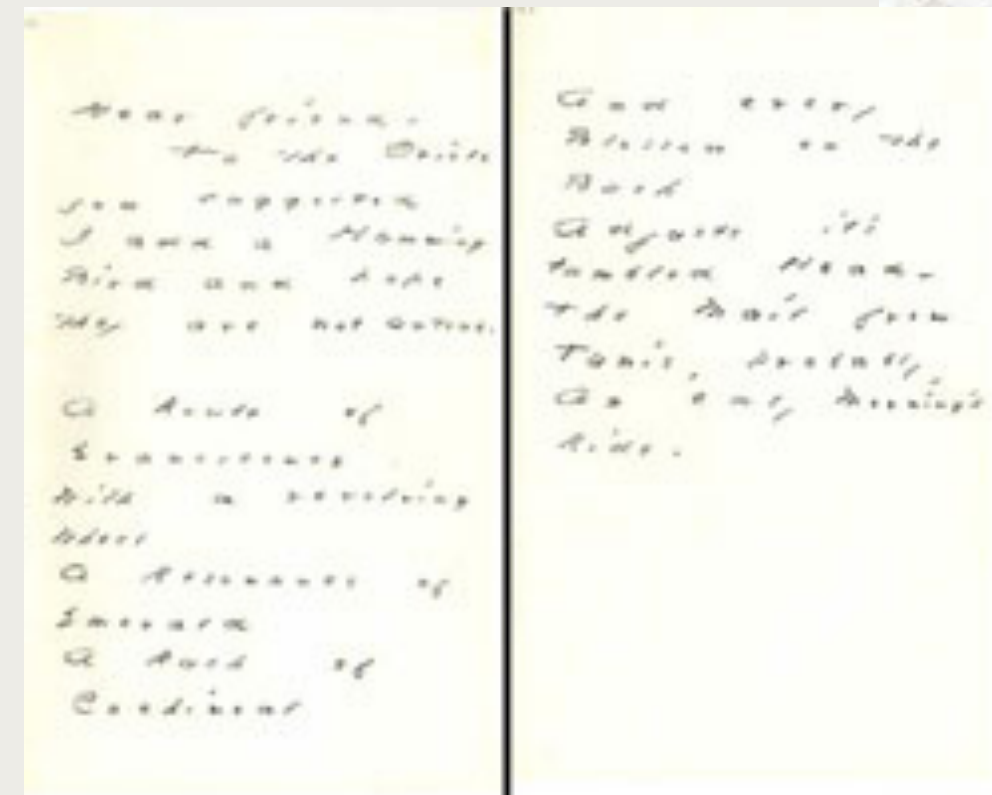 Dear friend.
To the Oriole
you suggested
I add a Humming
Bird and hope
they are not untrue.
A Route of
Evanescence
With a revolving
Wheel
A Resonance of
Emerald
A Rush of
Cochineal
And every
Blossom on the
Bush
Adjusts its
tumbled Head -
The Mail from
Tunis, probably,
An easy Morning's
Ride.